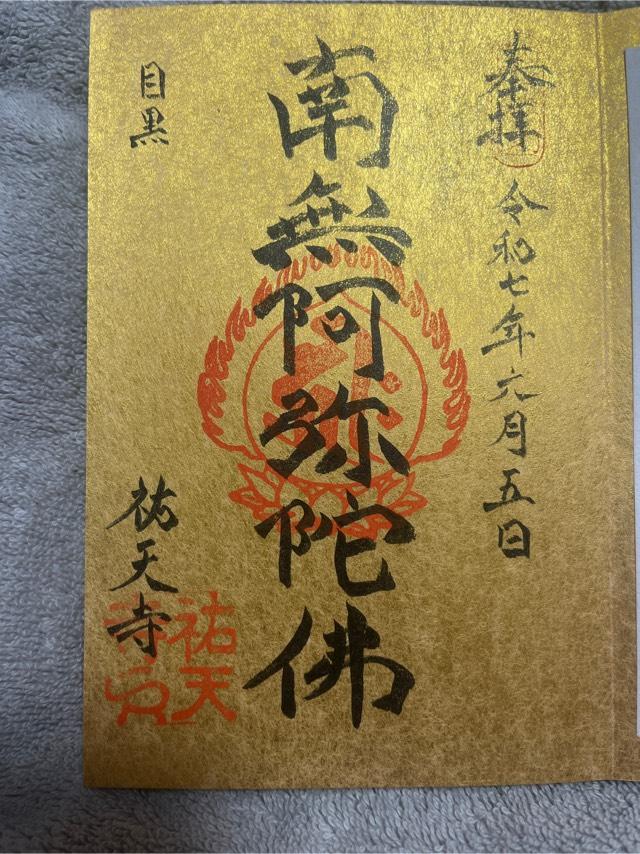 奉拝
令和七年六月五日
南無阿弥陀佛
目黒
祐天寺
祐天
寺印